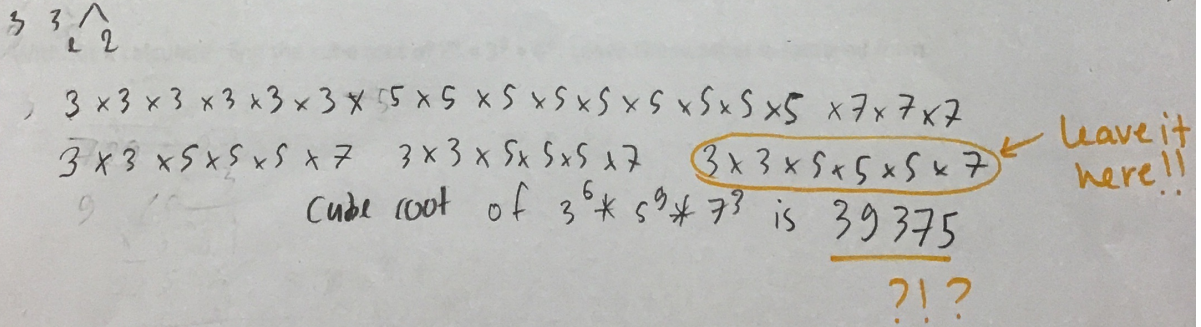 3 3
2 2
3 × 3 × 3 × 3 × 3 × 3 × 5 × 5 × 5 × 5 × 5 × 5 × 5 × 5 × 5 × 7 × 7 × 7
3 × 3 × 5 × 5 × 5 × 7 3 × 3 × 5 × 5 × 5 × 7 3 × 3 × 5 × 5 × 5 × 7
Leave it
here!!
Cube root of 3^6 * 5^9 * 7^3 is 39375
?!?